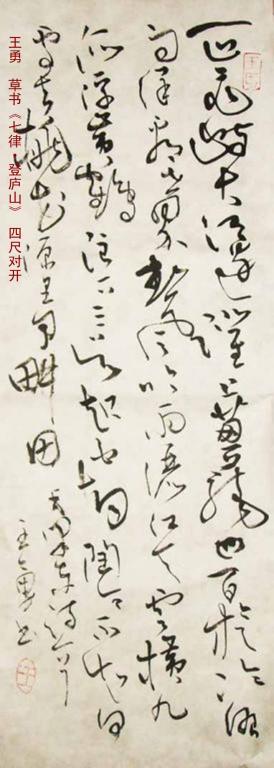 一山飞峙大江边跃上葱茏四百旋冷眼
向洋看世界热风吹雨洒江天云横九
派浮黄鹤浪下三吴起白烟陶令不知何
处去桃花源里可耕田
毛泽东诗
王勇书
王勇 草书《七律·登庐山》 四尺对开